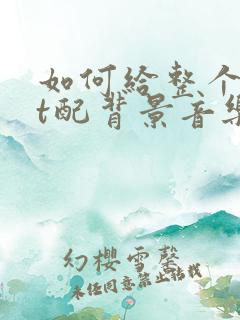 如何给整个
t配背景音乐
幻樱雪馨
未经同意禁止拈我